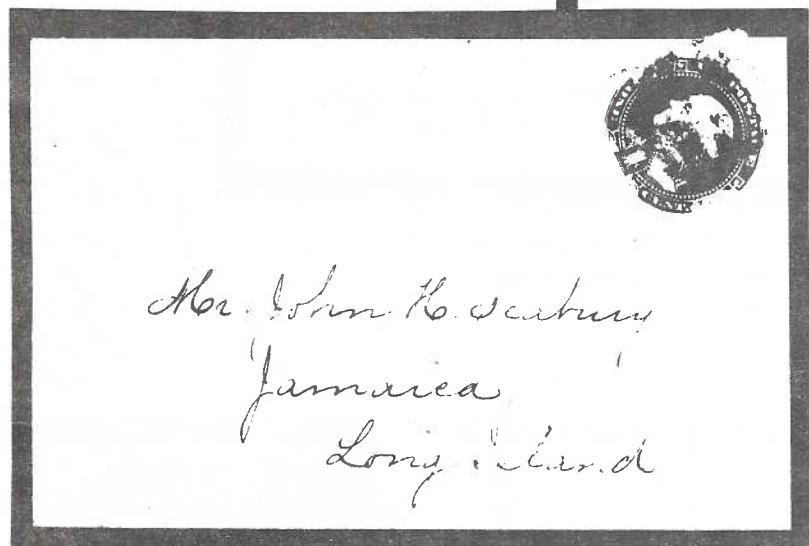 Mr. John H. Seabury
Jamaica
Long Island